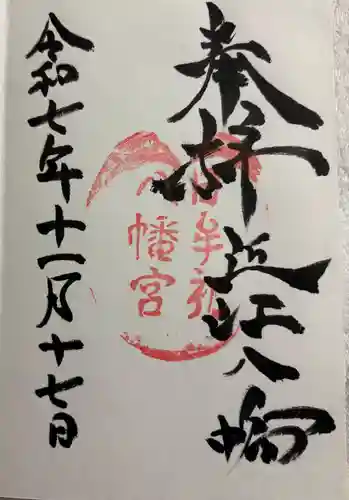 奉拝 近江八幡
日牟礼八幡宮
令和七年十一月十七日